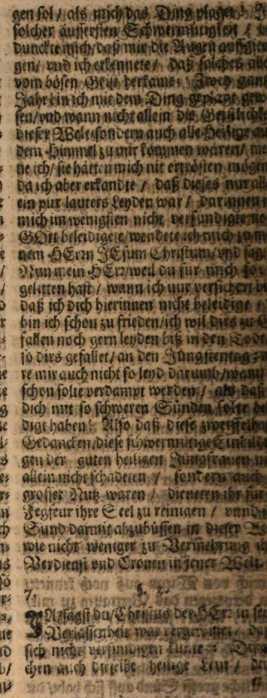 gen sol / als mich das Ding plaget. I
solcher äussersten Schwermütigkeit /
dunckte mich / daß mir die Augen auffgien
gen / und ich erkennete / daß solches alle
vom bösen Geist herkame. Zwey gantz
Jahr bin ich mit dem Ding geplagt gew
sen / und wann nicht allein die Geistlichk
dieser Welt / sondern auch alle Heilige au
dem Himmel zu mir kommen wären /
ne ich / sie hätten mich nit trösten mögen
da ich aber erkandte / daß dieses nur al
ein pur lauters Leyden war / darinnen
mich im wenigsten nicht versündigte
GOtt beleidigete / wendete ich mich zu m
nem HErrn JEsum Christum / und sag
Nun mein HErr / weil du für mich so
gelitten hast / wann ich nur versichert b
daß ich dich hierinnen nicht beleidige
bin ich schon zu frieden / ich wil dies zu
fallen noch gern leyden biß in den Tod
so dirs gefallet / an den Jüngsten tag
re mir auch nicht so leyd darumb / wann
schon solte verdampt werden / als daß
dich mit so schweren Sünden solte be
digt haben. Also daß diese zweiffelha
Gedancken / diese schwermütige Einbild
gen der guten heiligen Jungfrauen n
allein nicht schadeten / sondern auch
grosser Nutz waren / dieneten ihr für
Fegfeur ihre Seel zu reinigen / vnnd
Sünd darmit abzubüssen in dieser
wie nicht weniger zu Vermehrung i
Verdienst und Cronen in jener Welt.
7. §. 2.
JA sagst du / Christus der HErr in sei
Verlassenheit war vergewist / da
sich nicht versündigen kunte.
chen auch dieselbe heilige Leut / de